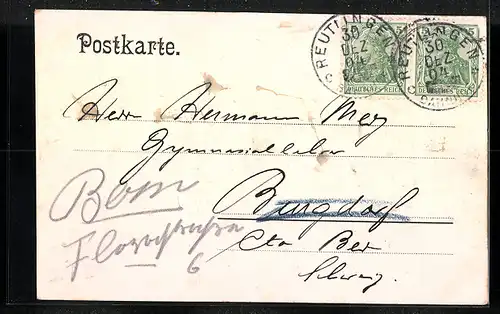 REUTLINGEN
30
DEZ
04
REUTLINGEN
30
DEZ
04
Postkarte.
DEUTSCHES REICH
DEUTSCHES REICH
Herr Hermann
Gymnasiallehrer
Bern
Burgdorf
6
Ctn Bern
Schweiz.